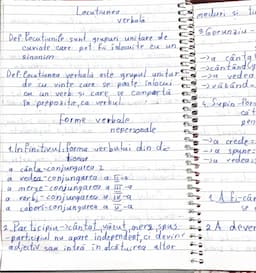 Locuțiunea
verbală
Def. Locuțiunile sunt grupuri unitare de
cuvinte care pot fi înlocuite cu un
sinonim
Def. Locuțiunea verbală este grupul unitar
de cuvinte care se poate înlocui
cu un verb și care se comportă
în propoziție, ca verbul.
Forme verbale
nepersonale
1. Infinitivul: forma verbului din dic-
ționar
a cânta - conjugarea I
a vedea - conjugarea a II-a
a merge - conjugarea a III-a
a - conjugarea a IV-a
a coborî - conjugarea a IV-a
2. Participiu -> cântat, văzut, mers, spus
- participiul nu apare independent, ci devine
adjectiv sau intră în alcătuirea altor
3. Gerunziu =
-> a cânta
-> cântând
-> a vedea
-> văzând
4. Supin
-> a crede
-> a spune
-> a vedea
1. A fi
2. A deven